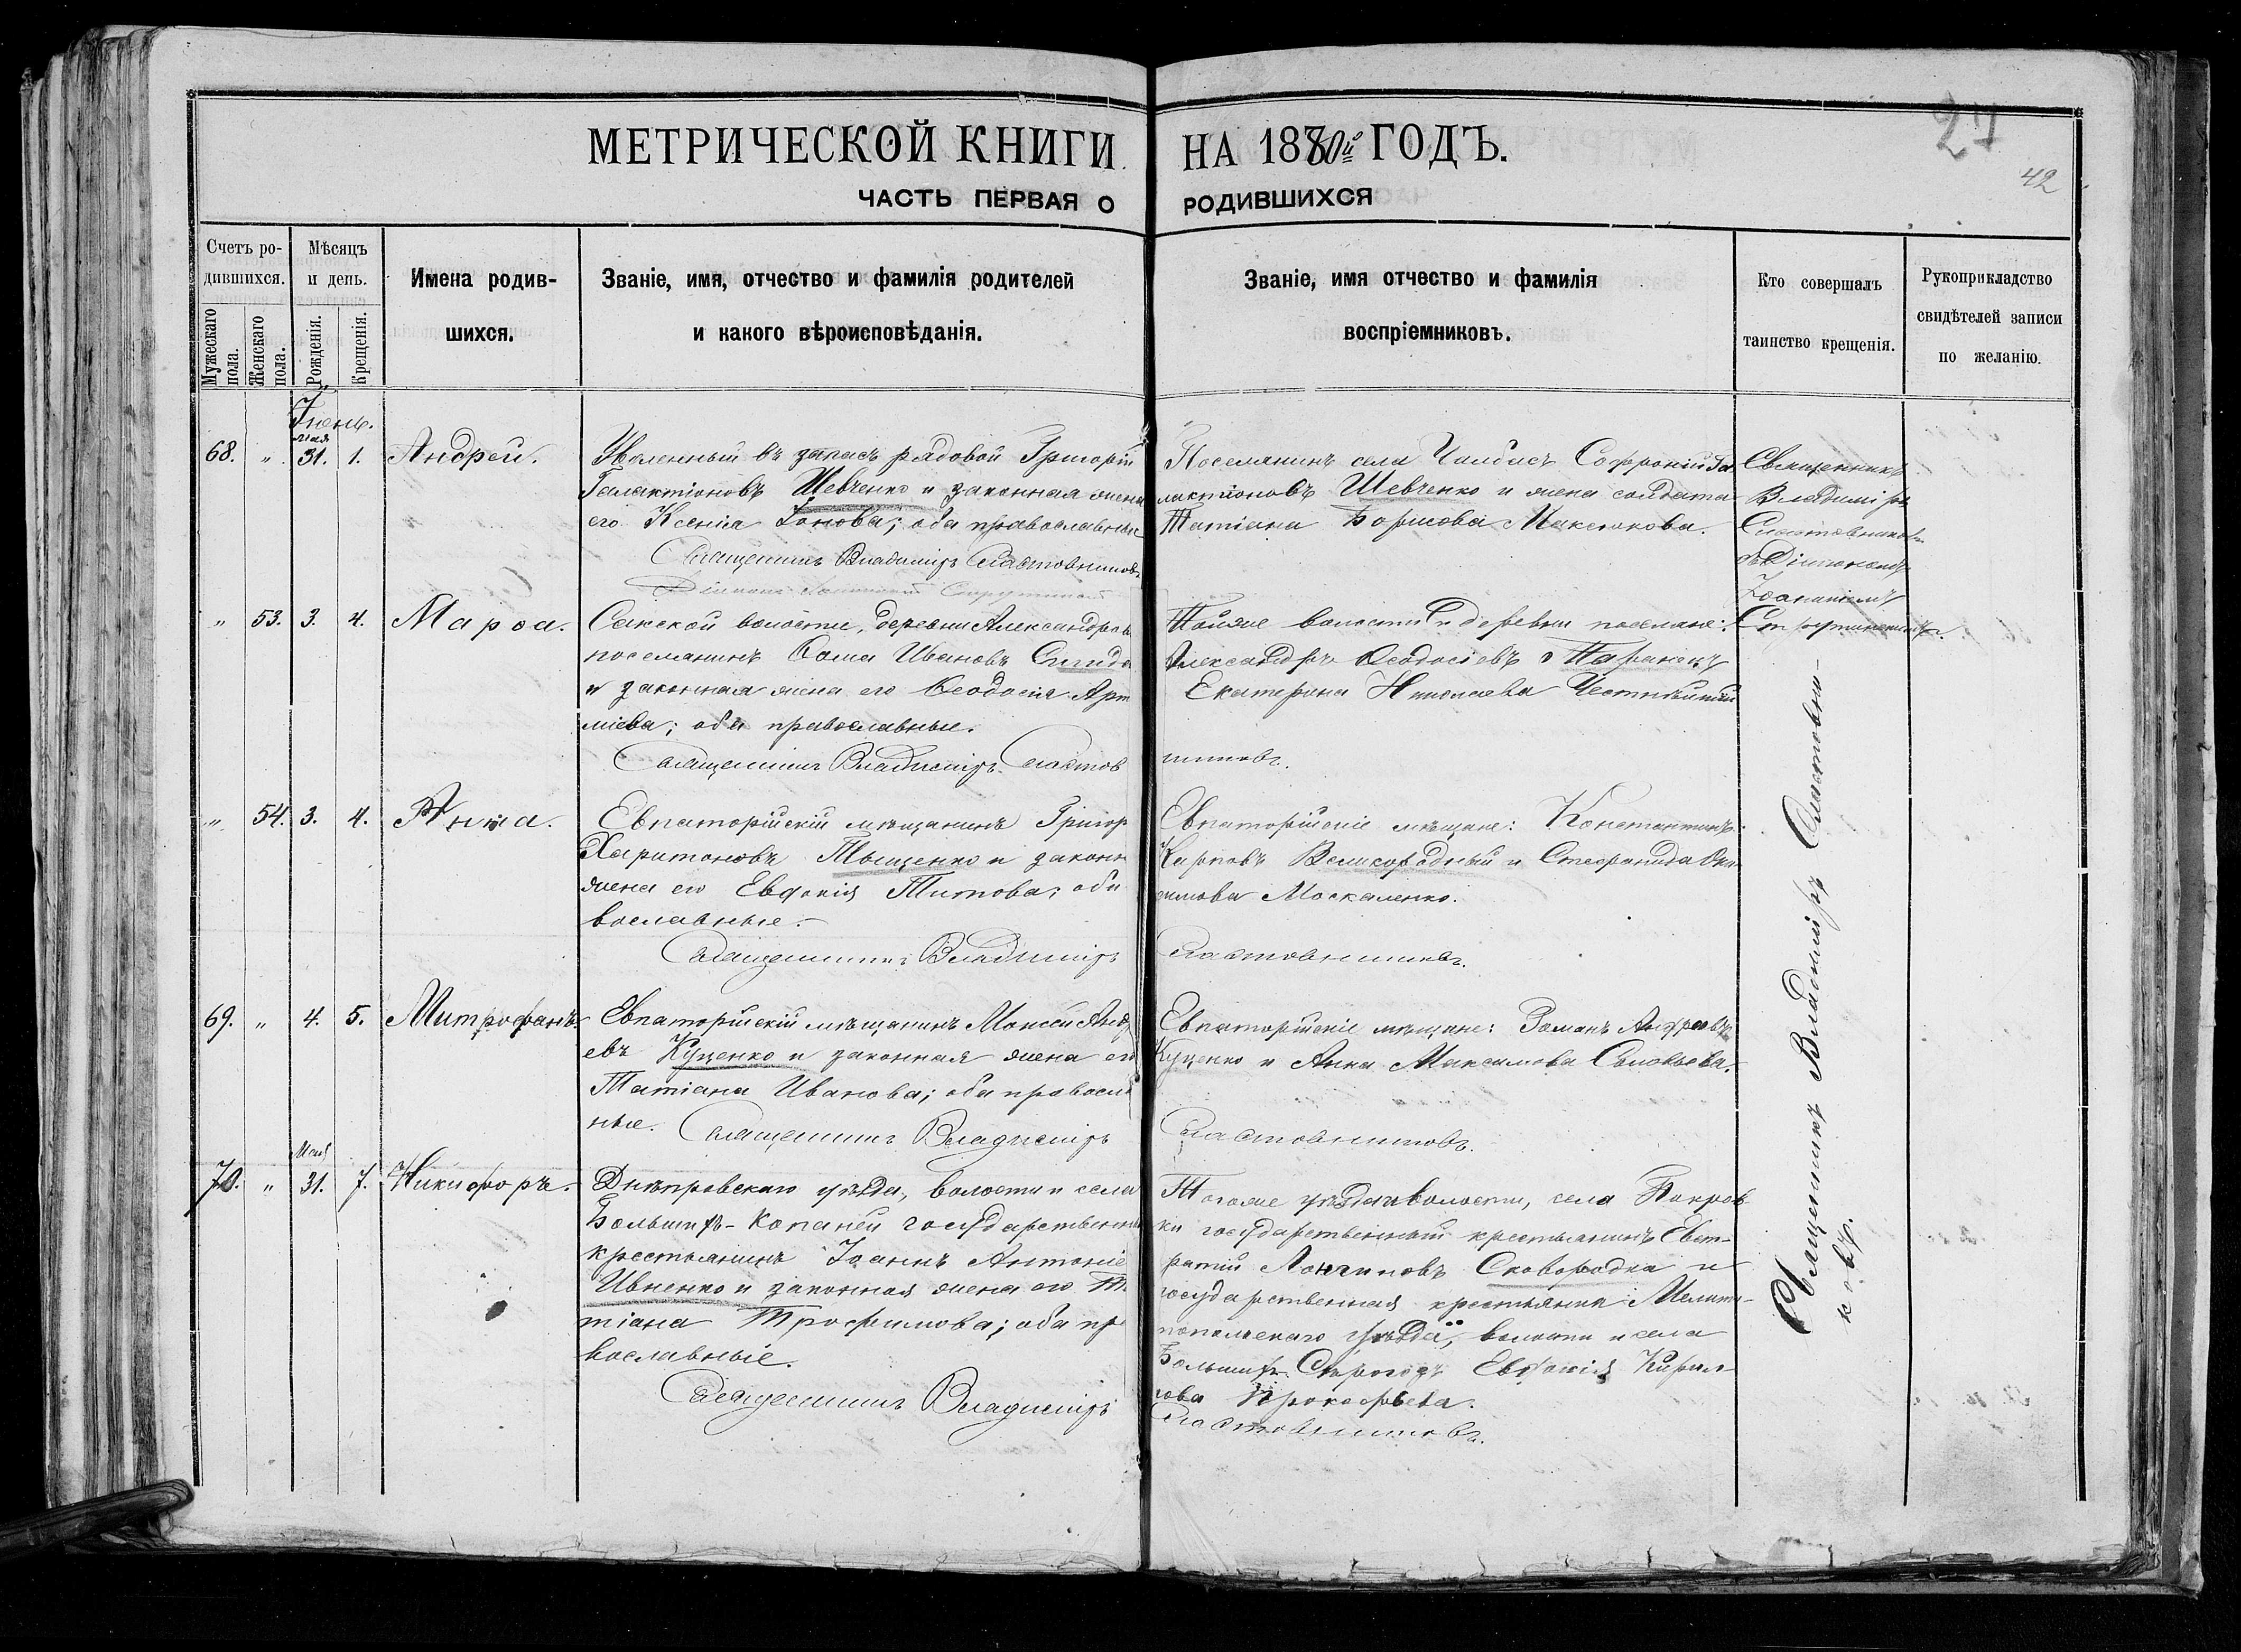 27
42
МЕТРИЧЕСКОЙ КНИГИ НА 1880й ГОДЪ.
ЧАСТЬ ПЕРВАЯ О РОДИВШИХСЯ
Счетъ ро-
дившихся.
Мужескаго пола.
Женскаго пола.
Мѣсяцъ
и день.
Рожденія.
Крещенія.
Имена родив-
шихся.
Званіе, имя, отчество и фамилія родителей
и какого вѣроисповѣданія.
Званіе, имя отчество и фамилія
воспріемниковъ.
Кто совершалъ
таинство крещенія.
Рукоприкладство
свидѣтелей записи
по желанію.
Іюнь.
мая
68. " 31. 1. Андрей.
Уволенный въ запасъ рядовой Григорій
Галактіоновъ Шевченко и законная жена
его Ксенія Іонова; оба православные
Священникъ Владиміръ Сластовниковъ
Поселянинъ села Чалбасъ Софроній Га
лактіоновъ Шевченко и жена солдата
Татіана Борисова Максюкова.
Священникъ
Владиміръ
Сластовниковъ
съ Діакономъ
" 53. 3. 4. Марѳа.
Сакской волости, деревни Александров
поселянинъ Ѳома Ивановъ Сигида
и законная жена его Ѳеодосія Арт
міева; оба православные.
Священникъ Владиміръ Сластов
Той же волости и деревни поселяне:
Александръ Ѳеодосіевъ Таранецъ
Екатерина Николаева
никовъ.
" 54. 3. 4. Анна.
Евпаторійскій мѣщанинъ Григор
Харитоновъ Тыщенко и законн
жена его Евдокія Титова; оба
вославные.
Священникъ Владиміръ
Евпаторійскіе мѣщане: Константинъ
Карповъ Великородный и Стефанида
Москаленко.
Сластовниковъ.
69. " 4. 5. Митрофанъ.
Евпаторійскій мѣщанинъ Моисей Анд
евъ Куценко и законная жена его
Татіана Иванова; оба правосла
ные. Священникъ Владиміръ
Евпаторійскіе мѣщане: Романъ Андреевъ
Куценко и Анна Максимова Соловьева.
Сластовниковъ.
Мая
70. " 31. 7. Никифоръ.
Днѣпровскаго уѣзда, волости и села
Большихъ-Копаней государственны
крестьянинъ Іоаннъ Антоніе
Ивненко и законная жена его Т
тіана Трофимова; оба пр
вославные.
Священникъ Владиміръ
Того же уѣзда и волости, села Покров
ки государственный крестьянинъ Евст-
ратій Лонгиновъ Сковородка и
государственная крестьянка Мелито-
польскаго уѣзда, волости и села
Большихъ Сирогозъ Евдокія Кирил-
лова Прокофьева.
Сластовниковъ.
Священникъ Владиміръ Сластовни-
ковъ.